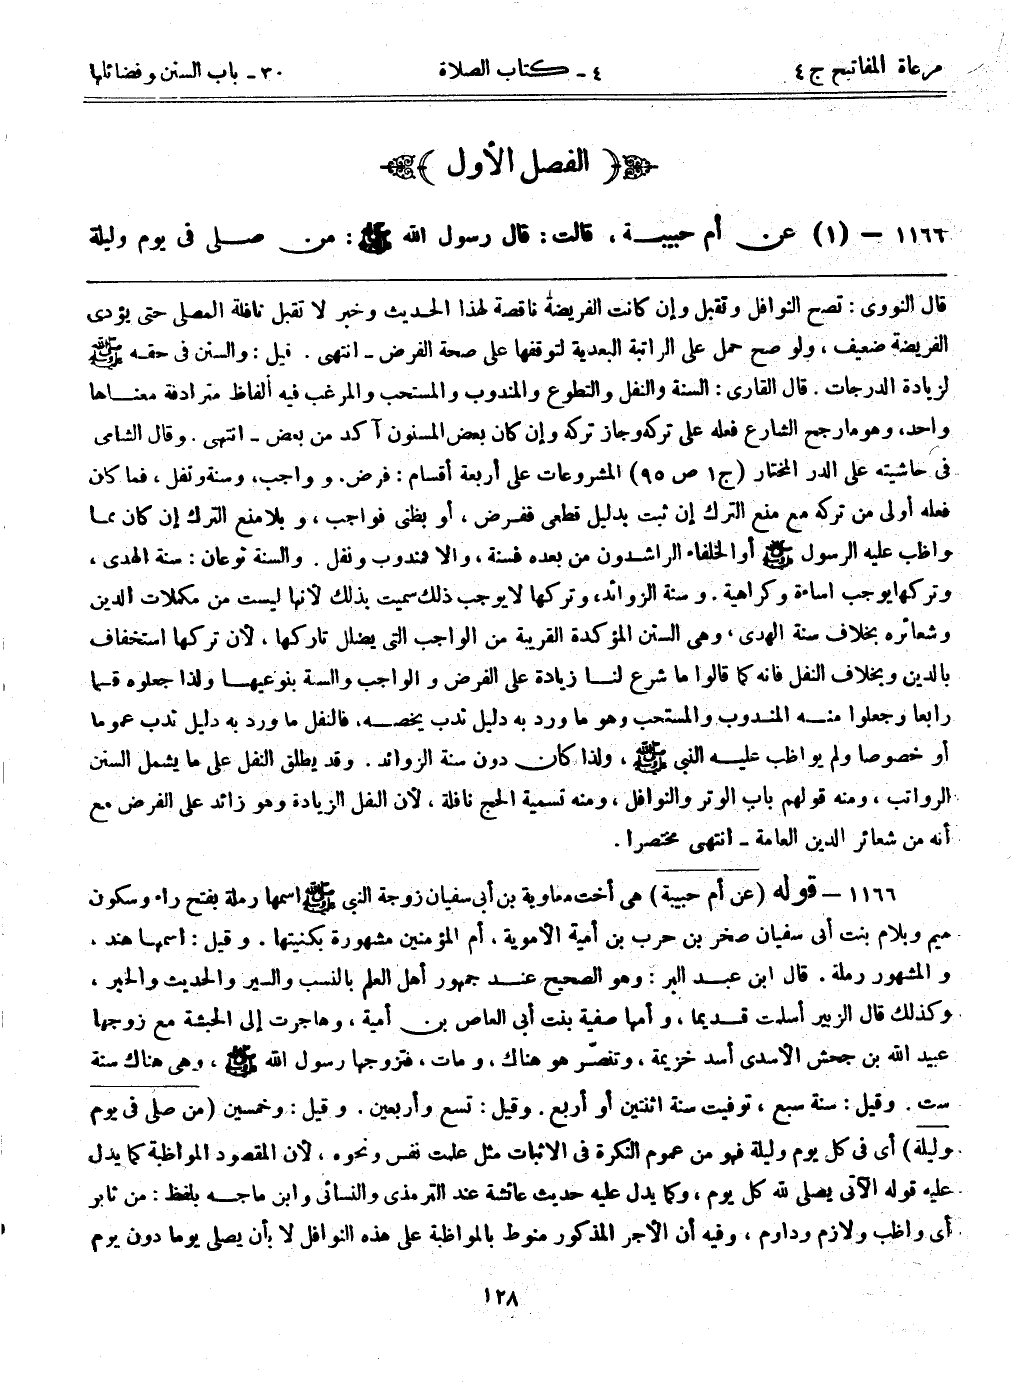 مرعاة المفاتيح ج ٤
٤ ـ كتاب الصلاة
٣٠ ـ باب السنن و فضائلها
﴿ الفصل الأول ﴾
١١٦٦ – (١) عن أم حبيبة ، قالت : قال رسول الله ﷺ : من صلى فى يوم وليلة
قال النووى : تصح النوافل وتقبل وإن كانت الفريضة ناقصة لهذا الحديث وخبر لا تقبل نافلة المصلى حتى يؤدى
الفريضة ضعيف ، ولو صح حمل على الراتبة البعدية لتوقفها على صحة الفرض ـ انتهى . قيل : والسنن فى حقه ﷺ
لزيادة الدرجات . قال القارى : السنة والنفل والتطوع والمندوب والمستحب والمرغب فيه ألفاظ مترادفة معناها
واحد، وهو مارجح الشارع فعله على تركه وجاز تركه وإن كان بعض المسنون آكد من بعض ـ انتهى . وقال الشامى
فى حاشيته على الدر المختار (ج١ ص ٩٥) المشروعات على أربعة أقسام : فرض، و واجب، وسنة ونفل ، فما كان
فعله أولى من تركه مع منع الترك إن ثبت بدليل قطعى ففرض ، أو بظنى فواجب ، و بلامنع الترك إن كان مما
واظب عليه الرسول ﷺ أو الخلفاء الراشدون من بعده فسنة ، والا فمندوب ونفل . والسنة نوعان : سنة الهدى ،
وتركها يوجب اساءة وكراهية . و سنة الزوائد، وتركها لايوجب ذلك سميت بذلك لأنها ليست من مكملات الدين
وشعائره بخلاف سنة الهدى، وهى السنن المؤكدة القريبة من الواجب التى يضلل تاركها ، لأن تركها استخفاف
بالدين وبخلاف النفل فانه كما قالوا ما شرع لنا زيادة على الفرض و الواجب والسنة بنوعيهما ولذا جعلوه قسما
رابعا وجعلوا منه المندوب والمستحب وهو ما ورد به دليل ندب يخصه، فالنفل ما ورد به دليل ندب عموما
أو خصوصا ولم يواظب عليه النبى ﷺ ، ولذا كان دون سنة الزوائد . وقد يطلق النفل على ما يشمل السنن
الرواتب ، ومنه قولهم باب الوتر والنوافل ، ومنه تسمية الحج نافلة ، لأن النفل الزيادة وهو زائد على الفرض مع
أنه من شعائر الدين العامة ـ انتهى مختصرا .
١١٦٦ – قوله (عن أم حبيبة) هى أخت معاوية بن أبى سفيان زوجة النبى ﷺ اسمها رملة بفتح راء وسكون
ميم وبلام بنت أبى سفيان صخر بن حرب بن أمية الأموية ، أم المؤمنين مشهورة بكنيتها . و قيل : اسمها هند ،
و المشهور رملة . قال ابن عبد البر : وهو الصحيح عند جمهور أهل العلم بالنسب والسير والحديث والخبر ،
وكذلك قال الزبير أسلمت قديما ، و أمها صفية بنت أبى العاص بن أمية ، وهاجرت إلى الحبشة مع زوجها
عبيد الله بن جحش الأسدى أسد خزيمة ، وتنصّر هو هناك ، و مات ، فتزوجها رسول الله ﷺ ، وهى هناك سنة
ست . وقيل : سنة سبع ، توفيت سنة اثنتين أو أربع . وقيل : تسع وأربعين . و قيل : وخمسين (من صلى فى يوم
وليلة) أى فى كل يوم وليلة فهو من عموم النكرة فى الاثبات مثل علمت نفس ونحوه ، لأن المقصود المواظبة كما يدل
عليه قوله الآتى يصلى لله كل يوم ، وكما يدل عليه حديث عائشة عند الترمذى والنسائى وابن ماجه بلفظ : من ثابر
أى واظب ولازم وداوم ، وفيه أن الأجر المذكور منوط بالمواظبة على هذه النوافل لا بأن يصلى يوما دون يوم
١٢٨